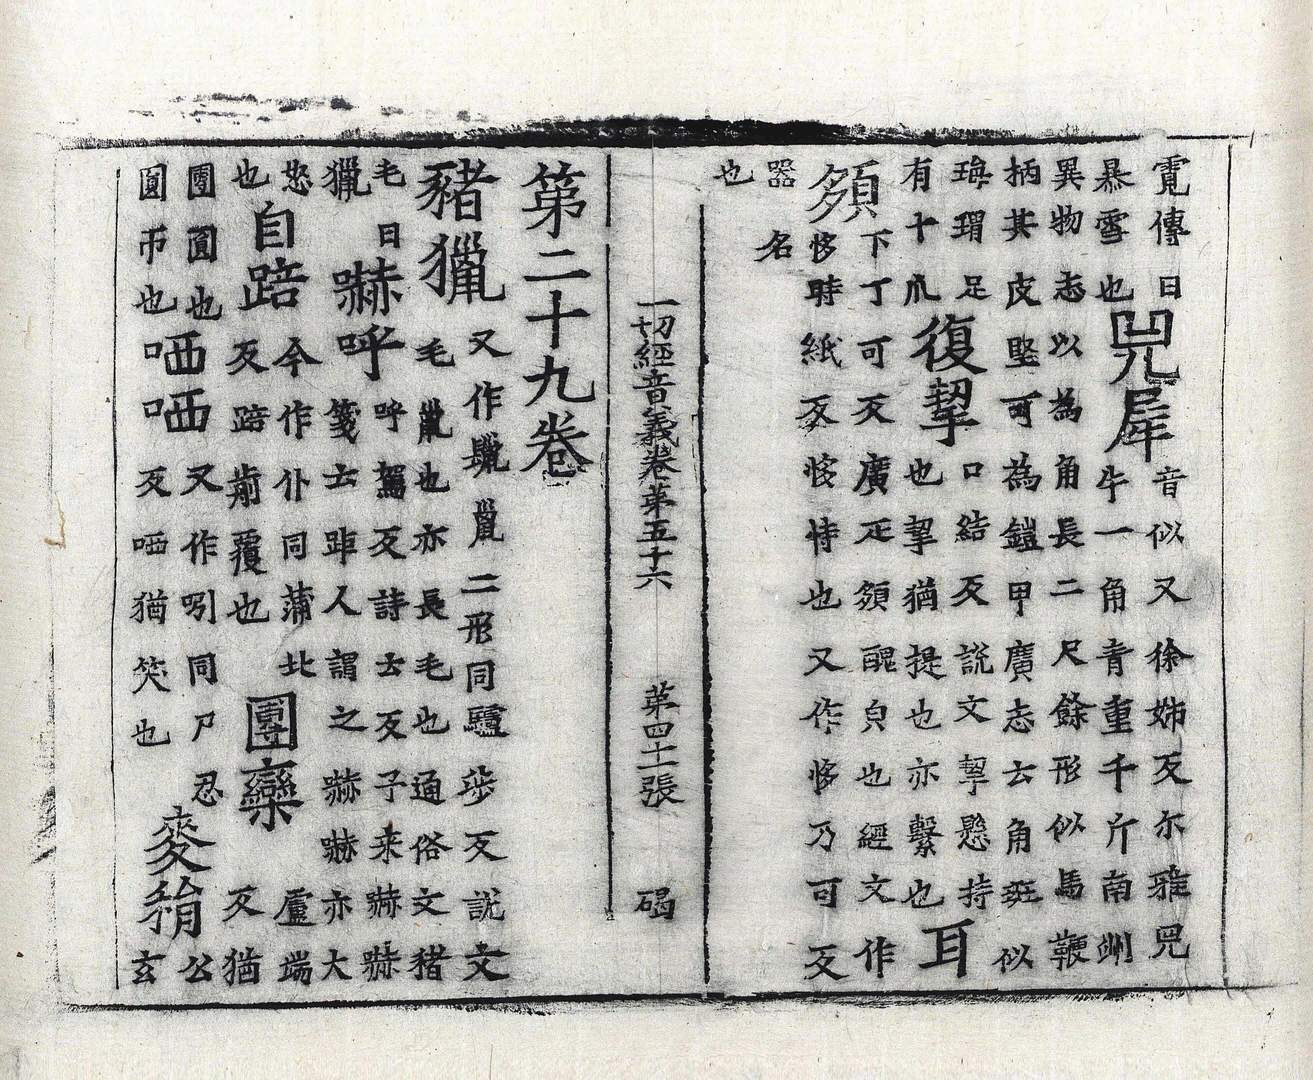 霓傳曰兕犀音似又徐姊反尔雅兕
暴雪也牛一角青重千斤南州
異物志以為角長二尺餘形似馬鞭
柄其皮堅可為鎧甲廣志云角斑似
瑇瑁足復挈口結反說文挈懸持
有十爪也挈猶提也亦繫也耳
頟下丁可反廣疋頟醜皃也經文作
侈時紙反恀恃也又作侈乃可反
器名
也
一切經音義卷第五十六 第四十一張 碣
第二十九卷
豬獵又作鬣巤二形同驢涉反說文
毛巤也亦長毛也通俗文豬
毛曰嚇呼呼駕反詩云反予来嚇嚇
獵箋云距人謂之嚇嚇亦大
怒今作仆同蒲北團欒盧端
也自踣反踣前覆也反猶
團圓也哂哂又作吲同尸忍麥䅌公
圓帀也反哂猶笑也玄